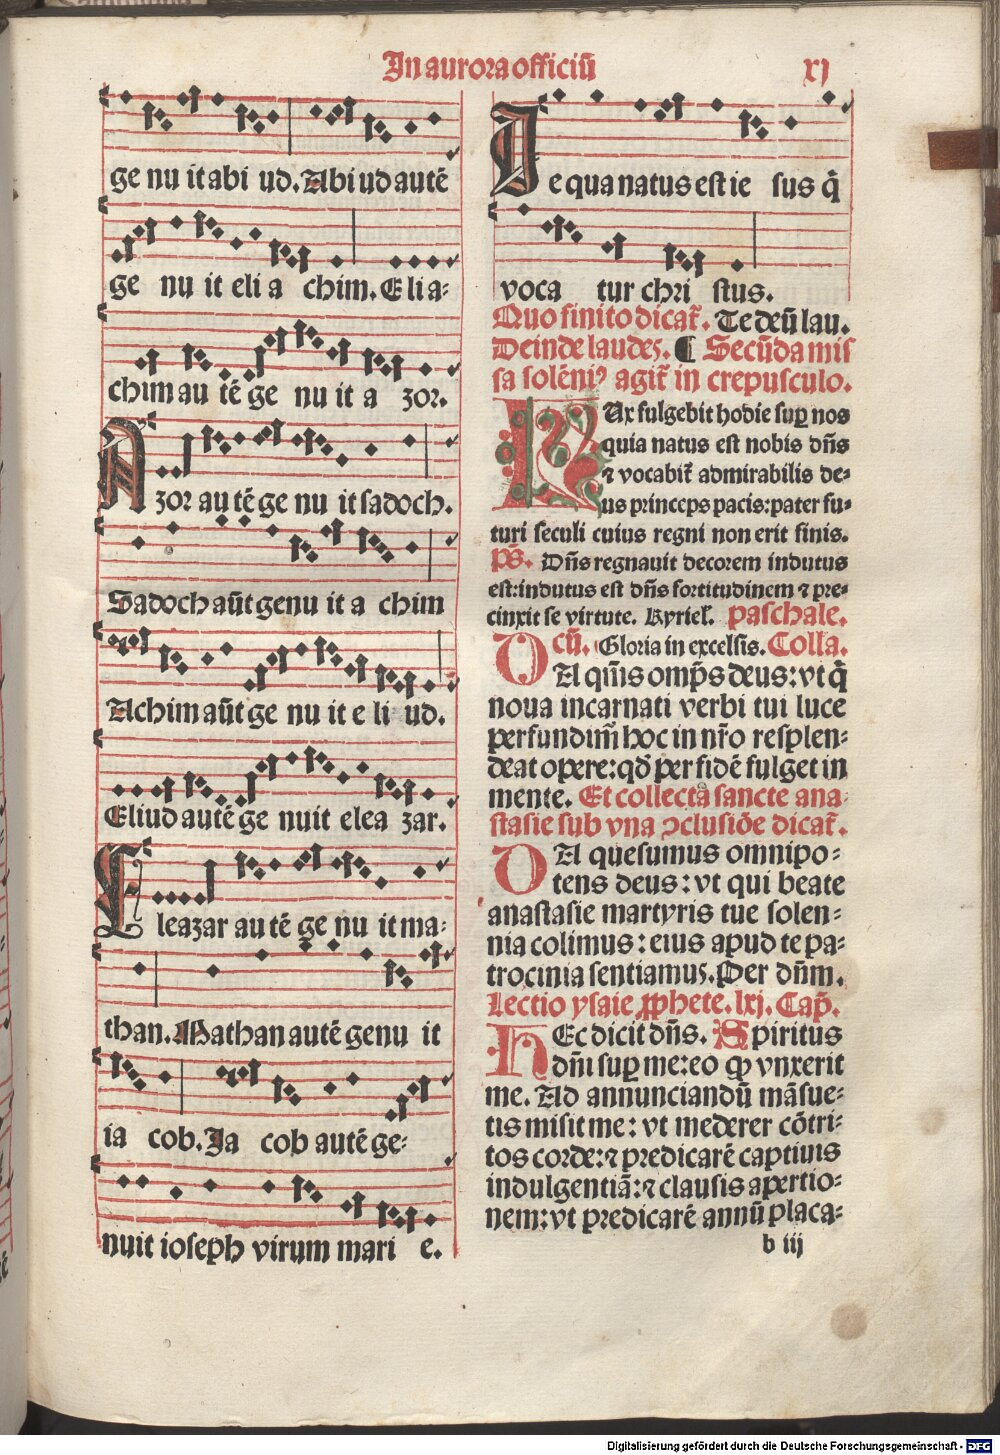 In aurora officiū
xj
ge nu it abi ud. Abiud autē
ge nu it eli a chim. Elia-
chim au tē ge nu it a zor.
Azor au tē ge nu it sadoch.
Sadoch aūt genu it a chim
Achim aūt ge nu it e li ud.
Eliud autē ge nuit elea zar.
Eleazar au tē ge nu it ma-
than. Mathan autē genu it
ia cob. Ja cob autē ge-
nuit ioseph virum mari e.
De qua natus est ie sus q̄
voca tur chri stus.
Quo finito dicat᷑. Te deū lau.
Deinde laudes. ¶ Secūda mis
sa solēniꝰ agit᷑ in crepusculo.
LUx fulgebit hodie suꝑ nos
quia natus est nobis dn̄s
⁊ vocabit᷑ admirabilis de-
us princeps pacis: pater fu-
turi seculi cuius regni non erit finis.
ps̄. Dn̄s regnauit decorem indutus
est: indutus est dn̄s fortitudinem ⁊ pre-
cinxit se virtute. Kyriel̄. paschale.
cū. Gloria in excelsis. Colla.
DA qm̄s omp̄s deus: vt q̄
noua incarnati verbi tui luce
perfundim̄ hoc in nr̄o resplen-
deat opere: qd̄ per fidē fulget in
mente. Et collecta sancte ana-
stasie sub vna ↄclusiōe dicat᷑.
DA quesumus omnipo-
tens deus: vt qui beate
anastasie martyris tue solen-
nia colimus: eius apud te pa-
trocinia sentiamus. Per dn̄m.
Lectio ysaie ꝓphete. lxj. Cap̄.
HEc dicit dn̄s. Spiritus
dn̄i suꝑ me: eo ꝙ vnxerit
me. Ad annunciandū māsue-
tis misit me: vt mederer cōtri-
tos corde: ⁊ predicarē captiuis
indulgentiā: ⁊ clausis apertio-
nem: vt predicarē annū placa-
b iij
Digitalisierung gefördert durch die Deutsche Forschungsgemeinschaft - DFG